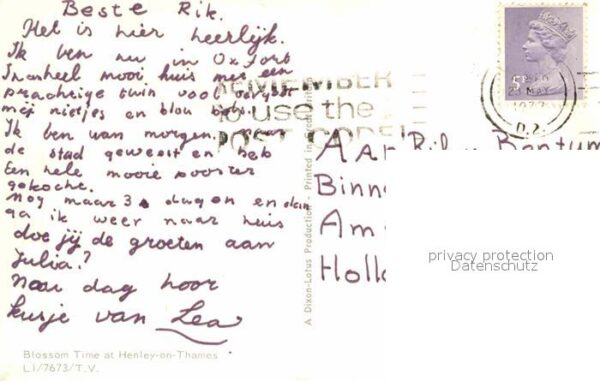 Beste Rik.
Het is hier heerlijk.
Ik ben nu in Oxfort
In een heel mooi huis met een
prachtige tuin vool
mij nietjes en blou
Ik ben van morgen naar
de stad geweest en heb
Een hele mooie poster
gekocht.
nog maar 3 dagen en dan
ga ik weer naar huis
doe jij de groeten aan
Julia?
Nou dag hoor
kusje van Lea
Blossom Time at Henley-on-Thames
L1/7673/T.V.
A Dixon-Lotus Production - Printed in
REMEMBER
to use the
POST CODE!
MAY
Aan
Binn
Am
Holl
privacy protection
Datenschutz